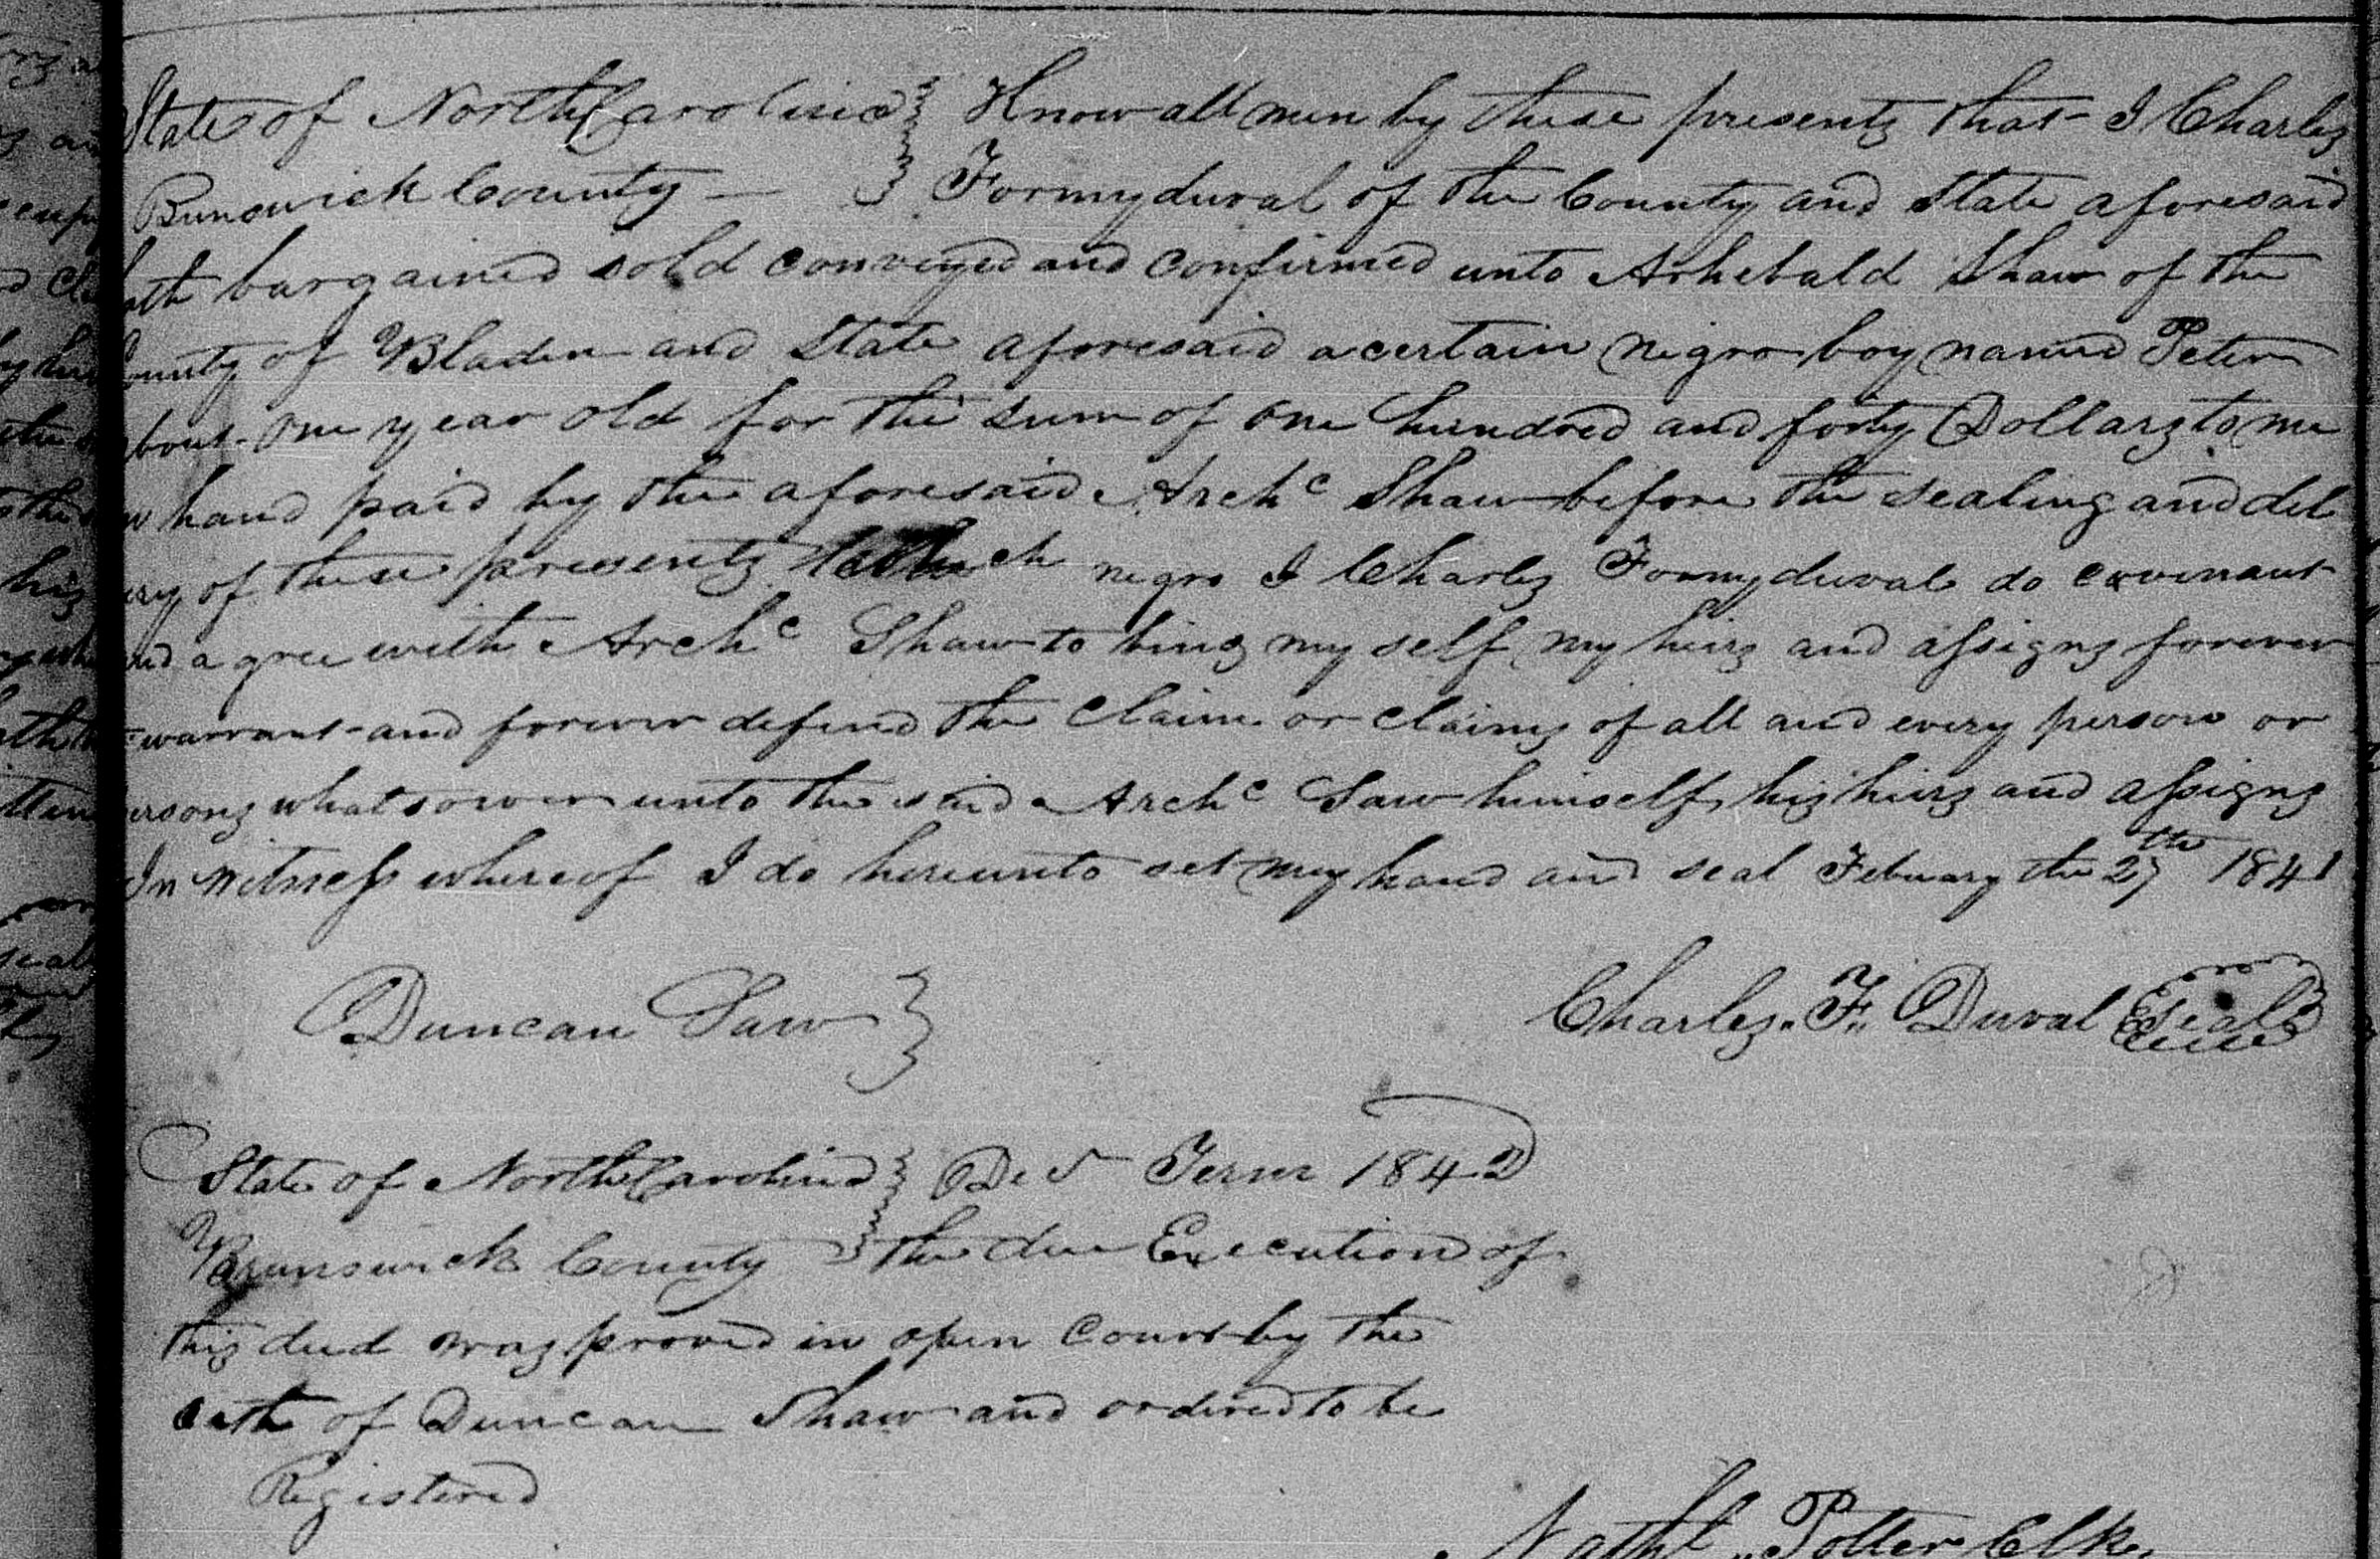 State of North Carolina } Know all men by these presents that I Charles
Bunswick County — } Formyduval of the County and State aforesaid
hath bargained sold conveyed and confirmed unto Arhebald Shaw of the
County of Bladen and State aforesaid a certain negro boy named Peter
about one year old for the sum of one hundred and forty Dollars to me
in hand paid by the aforesaid Archc Shaw before the sealing and del
ery of these presents which negro I Charles Formyduval do covenant
and agree with Archc Shaw to bing my self my heirs and assigns forever
warrant and forever defend the claim or claims of all and every person or
persons whatsower unto the said Archc Saw himself his heirs and assigns
In witness whereof I do hereunto set my hand and seal Febuary the 27th 1841
Duncan Saw } Charles. F. Duval seal
State of North Carolina } Term 1842
Brunswick County } the due Execution of
this deed was proved in open Court by the
oath of Duncan Shaw and ordered to be
Registered
Nathl Potter Clk